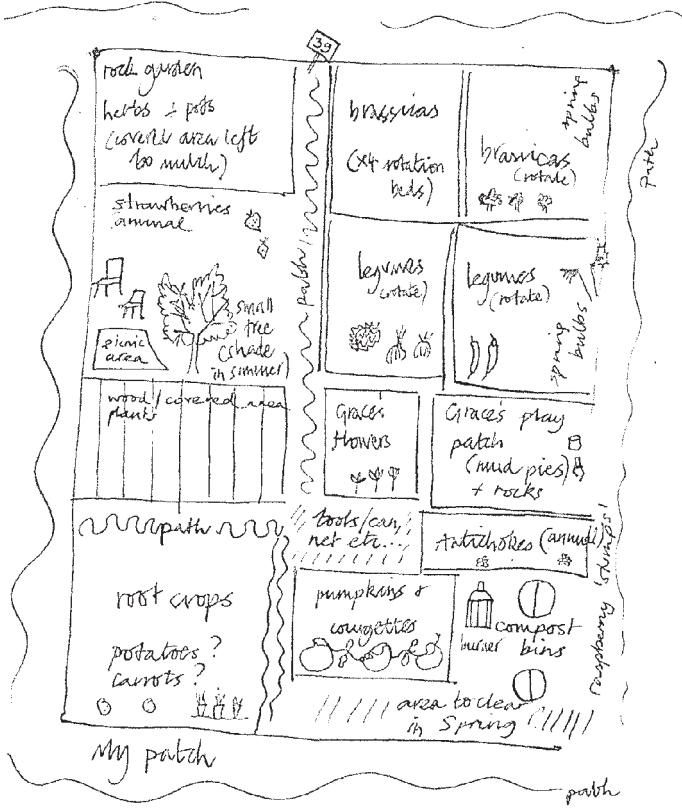 39
rock garden
herbs + pots
(coverd area left
to mulch)
strawberries
annual
picnic
area
small
tree
(shade
in summer)
wood/covered area
plants
path
root crops
potatoes?
carrots?
My patch
path
brassicas
(x4 rotation
beds)
brassicas
(rotate)
spring
bulbs
path
legumes
(rotate)
legumes
(rotate)
spring
bulbs
Grace's
flowers
Grace's play
patch
(mud pies)
+ rocks
tools/can,
net etc...
Artichokes (annual)
pumpkins +
courgettes
burner
compost
bins
raspberry
area to clear
in Spring
path